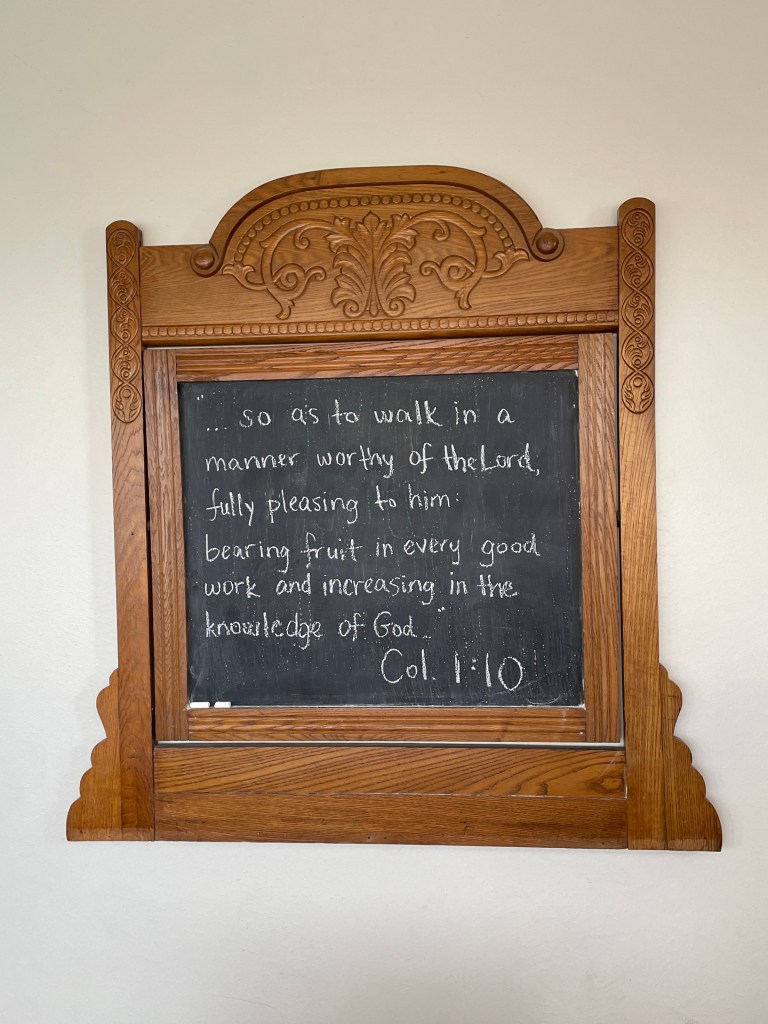 "... so as to walk in a
manner worthy of the Lord,
fully pleasing to him:
bearing fruit in every good
work and increasing in the
knowledge of God..."
Col. 1:10